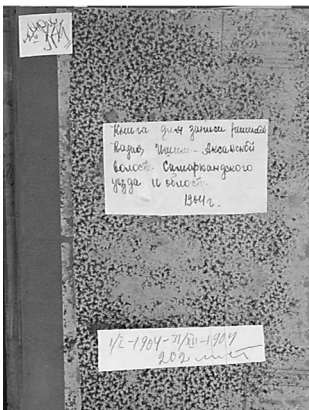 Книга для записи решений
Казия Ишим-Аксакской
волости Самаркандского
уезда и области
1904 г.
1/I-1904-31/XII-1904
202 лист